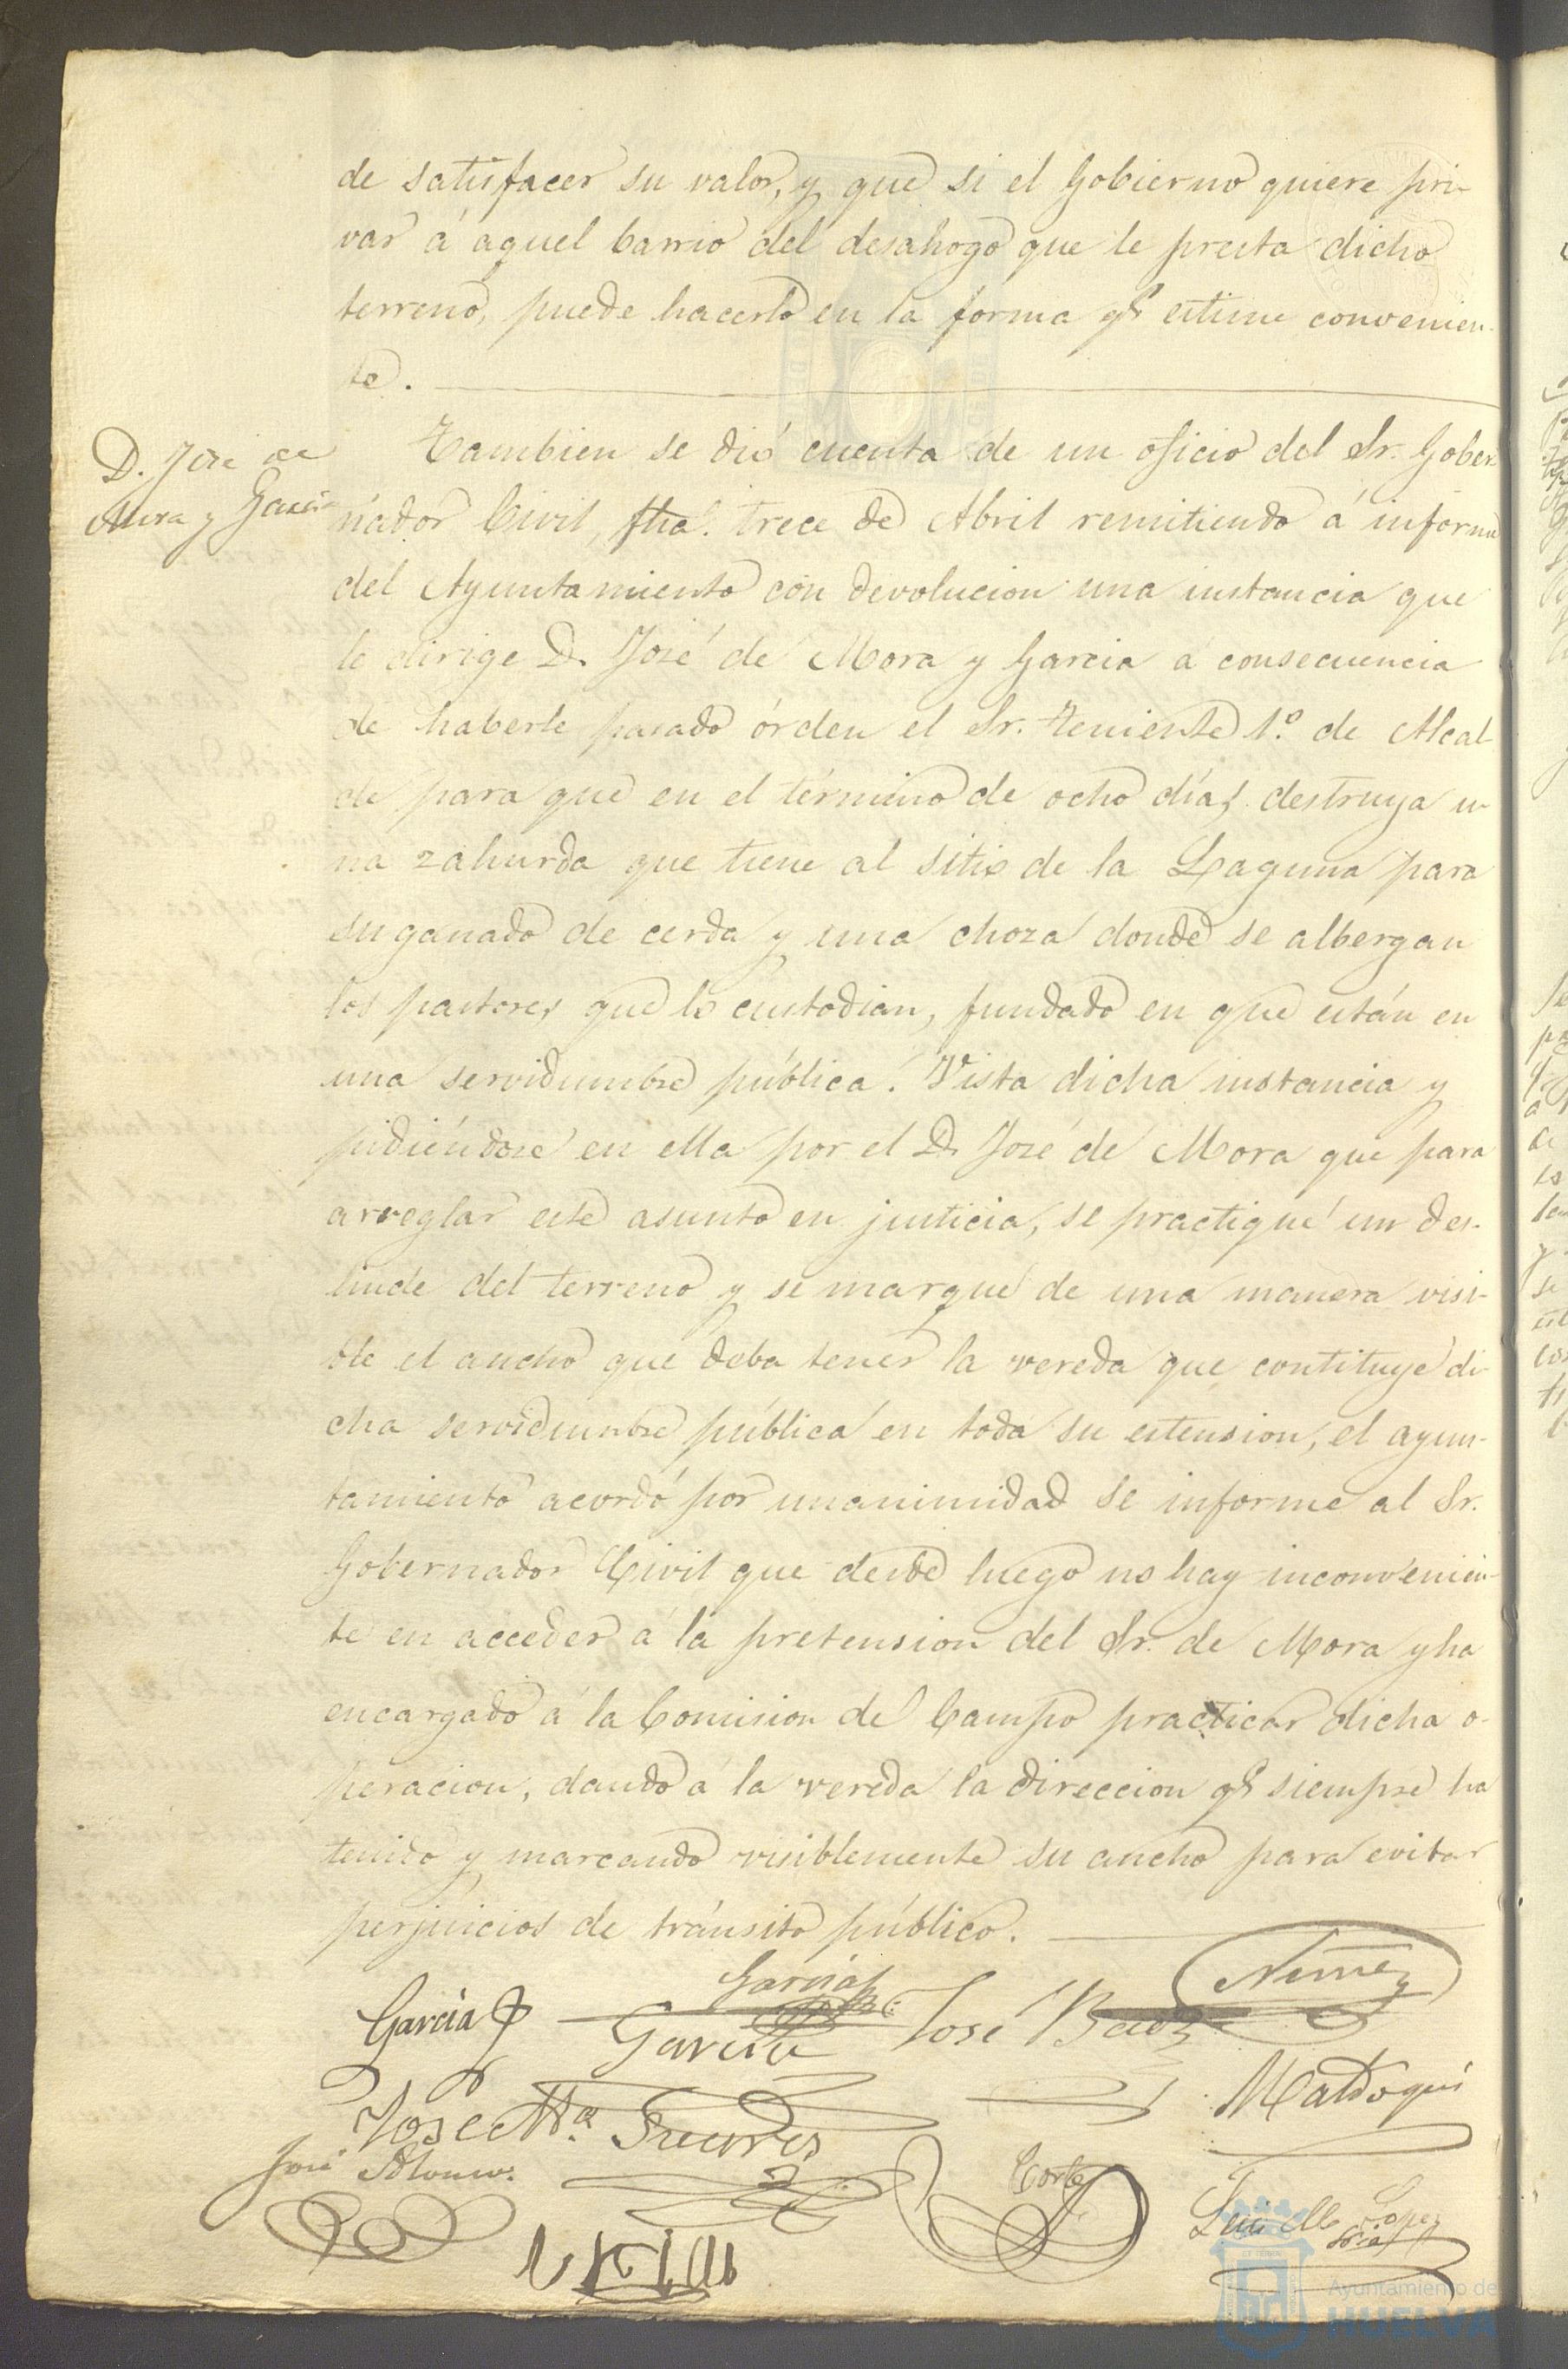 de satisfacer su valor, y que si el Gobierno quiere pri-
var á aquel barrio del desahogo que le presta dicho
terreno, puede hacerlo en la forma qe estime convenien-
te.
D. José de
Mora y Garcia
Tambien se dió cuenta de un oficio del Sr. Gober-
nador Civil, fha. trece de Abril remitiendo á informe
del Ayuntamiento con devolucion una instancia que
le dirige D. José de Mora y Garcia á consecuencia
de haberle pasado órden el Sr. Teniente 1.º de Alcal-
de para que en el término de ocho días destruya u-
na zahurda que tiene al sitio de la Laguna para
su ganado de cerda y una choza donde se albergan
los pastores que lo custodian, fundado en que están en
una servidumbre pública. Vista dicha instancia y
pidiéndose en ella por el D. José de Mora que para
arreglar este asunto en justicia, se practique un des-
linde del terreno y se marque de una manera visi-
ble el ancho que deba tener la vereda que contituye di-
cha servidumbre pública en toda su estension, el ayun-
tamiento acordó por unanimidad se informe al Sr.
Gobernador Civil que desde luego no hay inconvenien-
te en acceder á la pretension del Sr. de Mora y ha
encargado á la Comision de Campo practicar dicha o-
peracion, dando á la vereda la direccion qe siempre ha
tenido y marcando visiblemente su ancho para evitar
perjuicios de tránsito público.
Garcia
Garcia
Garcia
José
Nuñez
Maldoqui
José Mª Suares
José Alonso
Cortes
Luis Mª Lopez
Ayuntamiento de
HUELVA